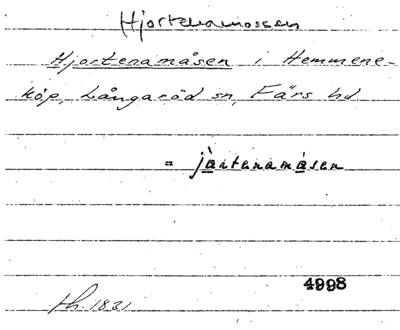 Hjortenamossen
Hjortenamåsen i Hemmene-
köp, Långaröd sn, Färs hd
= jàrtenamåsen
4998
th. 1831